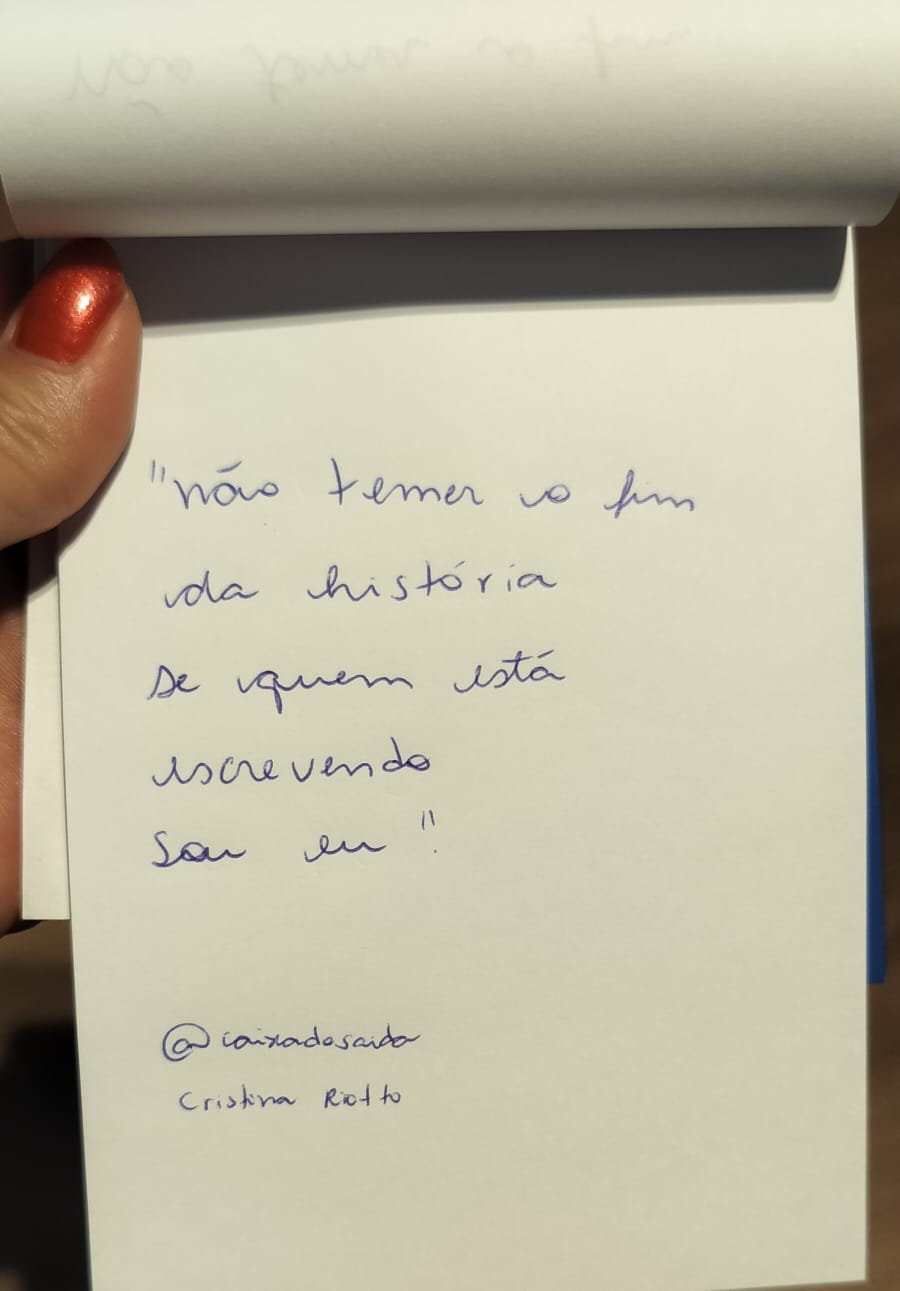 "não temer o fim
da história
se quem está
escrevendo
sou eu".
@caixadesaida
Cristina Riotto